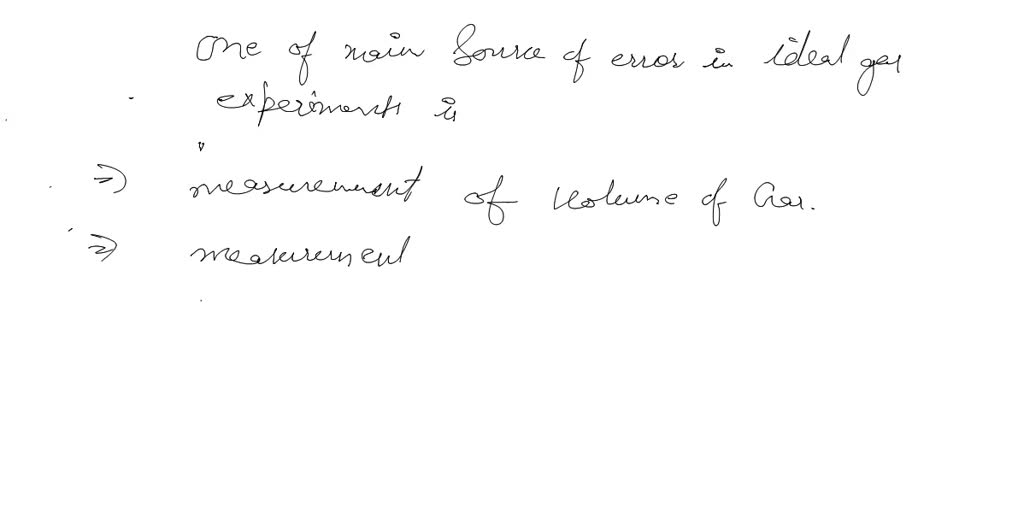 One of main Source of error in ideal gas
experiments is
⇒ measurement of Volume of Gas.
⇒ measurement